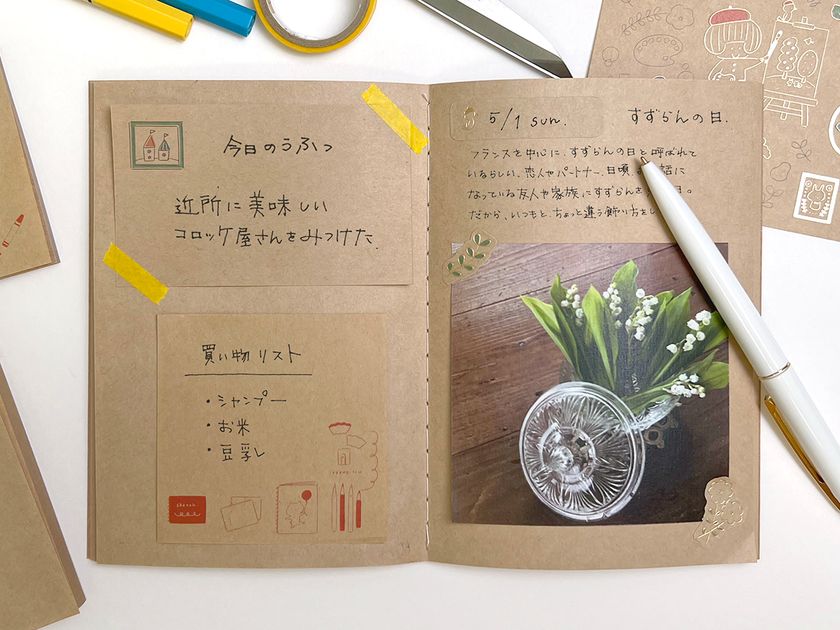 今日のうふっ
近所に美味しい
コロッケ屋さんをみつけた.
買い物リスト
・シャンプー
・お米
・豆乳
5/1 sun.
すずらんの日.
フランスを中心に、すずらんの日と呼ばれて
いるらしい。恋人やパートナー、日頃、 話に
なっている友人や家族にすずらんを 日。
だから、いつもと、ちょっと違う飾り方をし